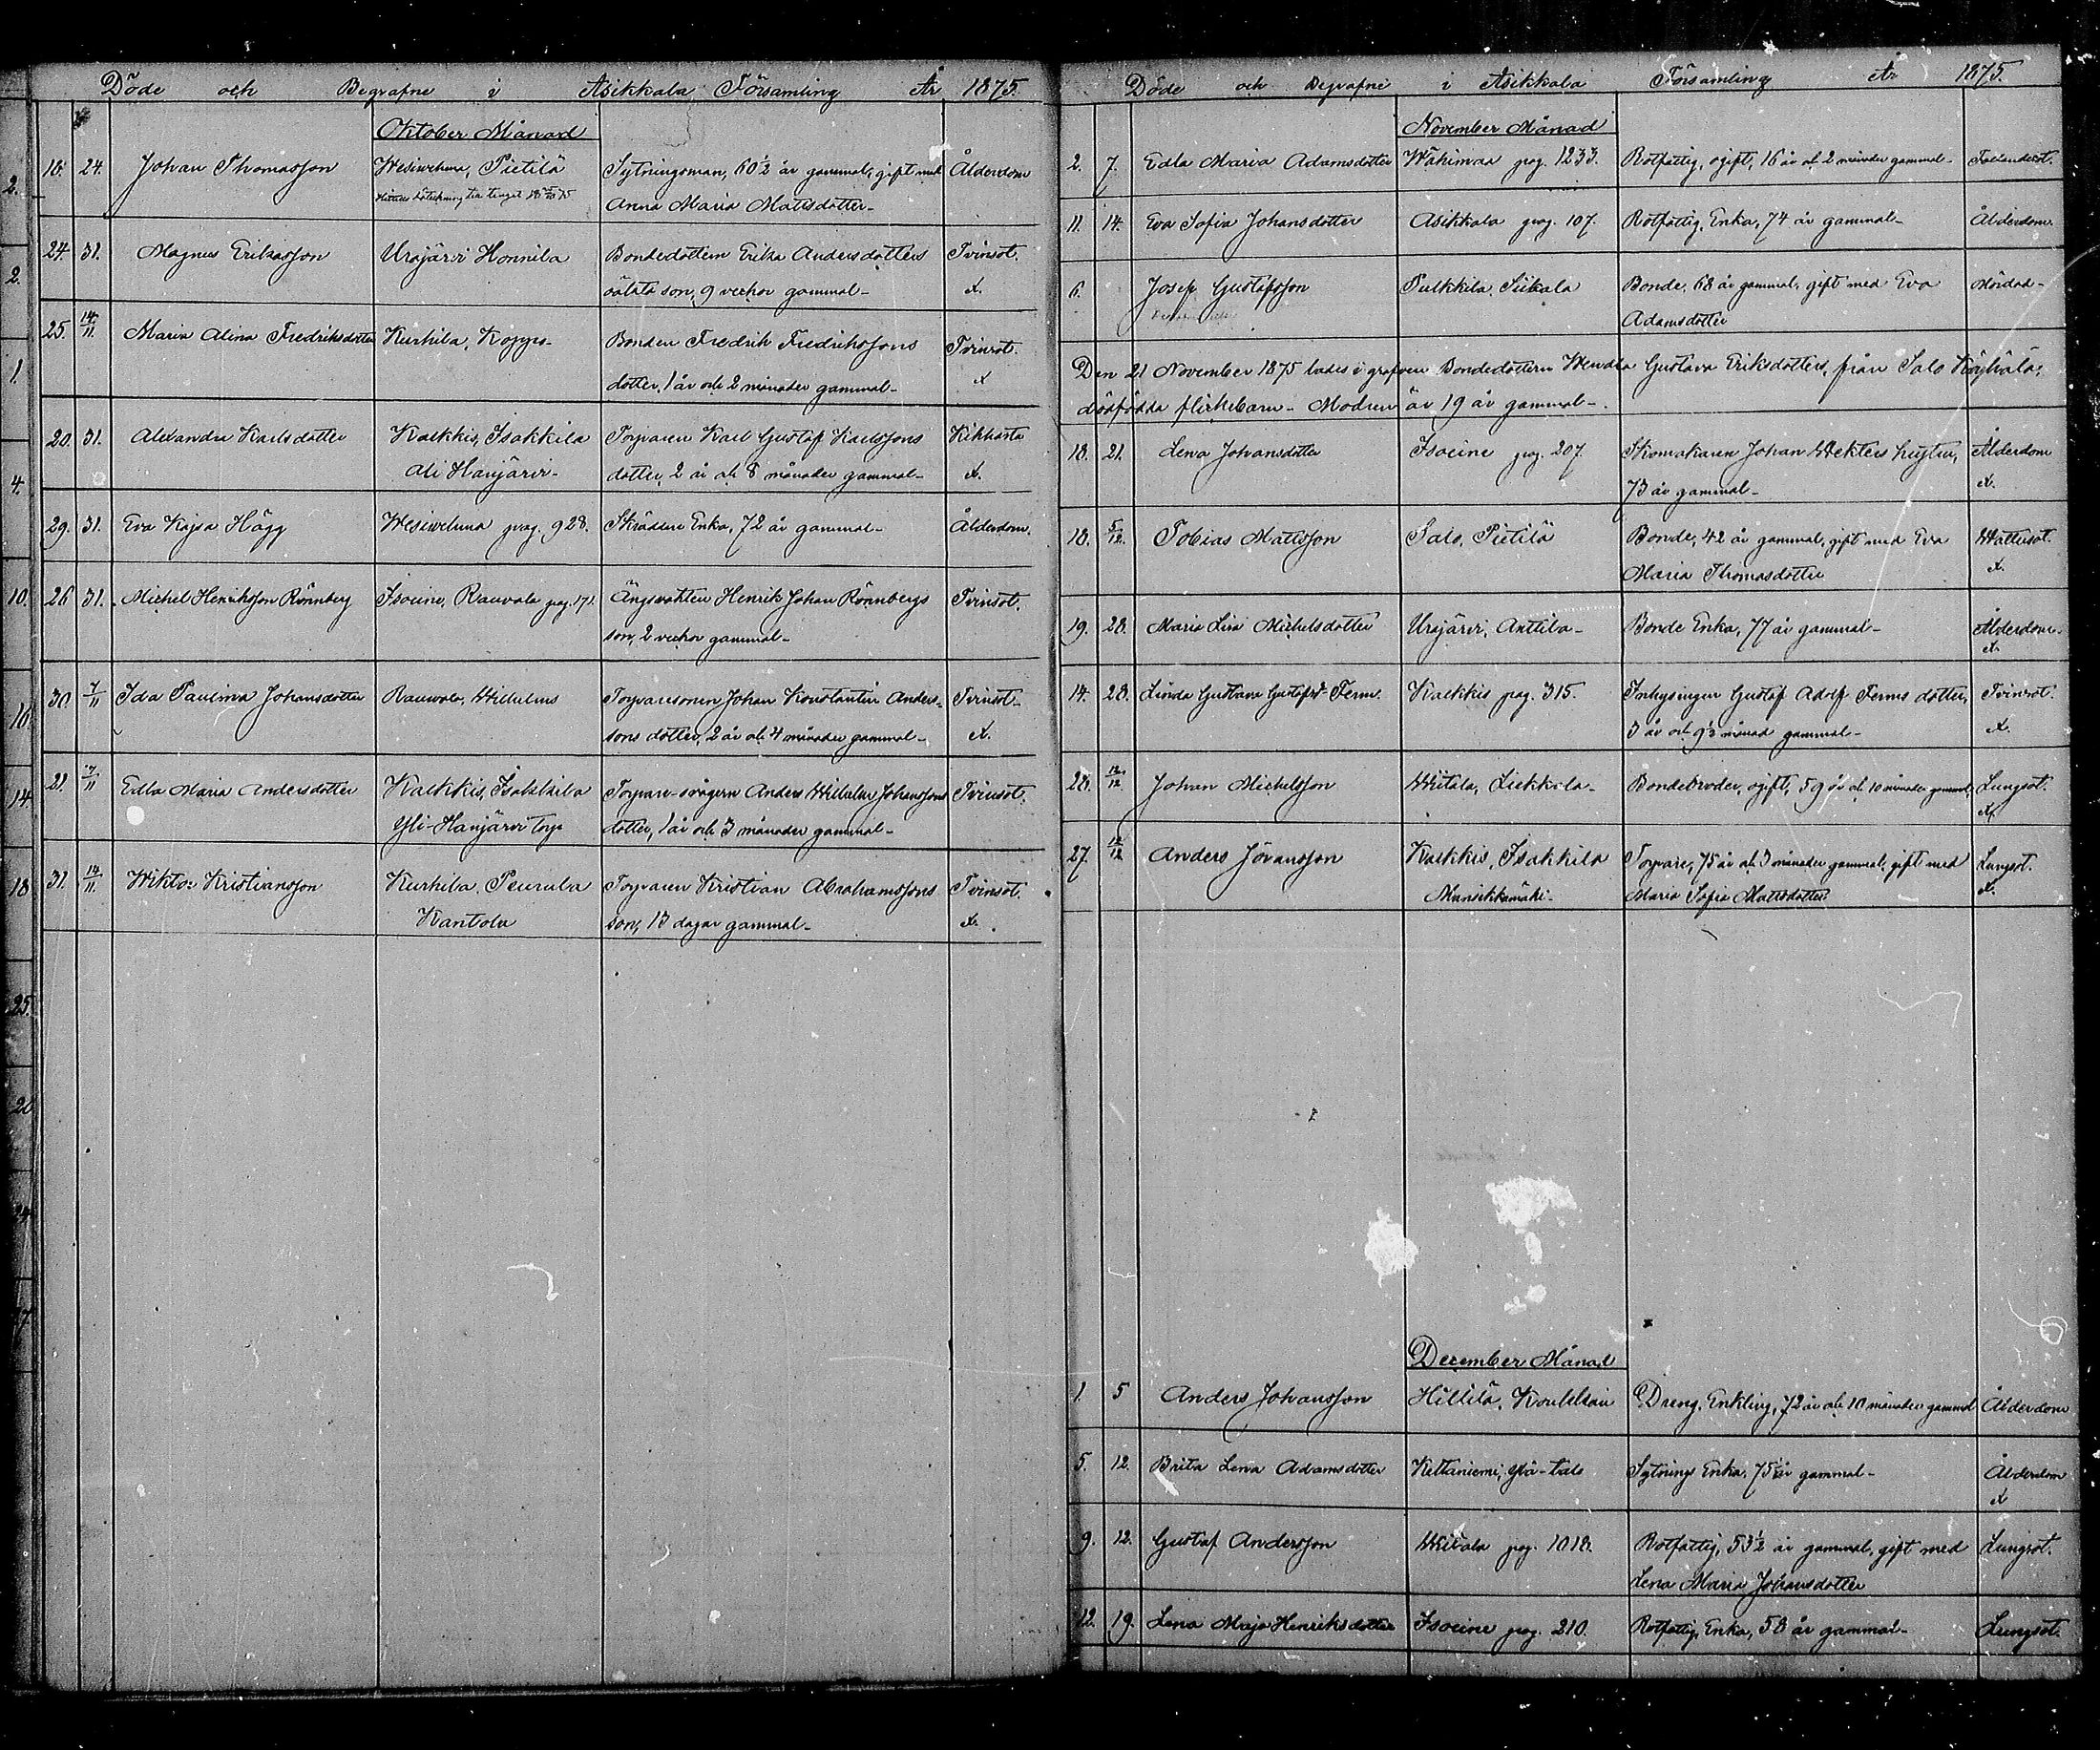 Döde och Begrafne i Asikkala Församling År 1875.
Oktober Månad
2.
18. 24. Johan Thomasson Wesivehma, Pietilä Sytningsman, 60½ år gammal, gift med Ålderdom
Anna Maria Mattsdotter
2.
24. 31. Magnus Eriksson Urajärvi Honnila Bondedottern Erika Andersdotters Tvinsot.
oäkta son, 9 veckor gammal x.
1.
25. 14/11. Maria Alina Fredriksdotter Kurhila, Koppo Bonden Fredrik Fredrikssons Tvinsot.
dotter, 1 år och 2 månader gammal x
4.
20. 31. Alexandra Karlsdotter Kalkkis, Isakkila Torparen Karl Gustaf Karlssons Kikhosta
Ali Hanjärvi dotter, 2 år och 8 månader gammal x.
29. 31. Eva Kajsa Hägg Wesivehma pag. 928. Skräddare Enka, 72 år gammal Ålderdom.
10.
26 31. Michel Henriksson Rönnberg Isoeine, Rauvala pag. 171. Ängsvakten Henrik Johan Rönnbergs Tvinsot.
son, 2 veckor gammal
10.
30. 7/11 Ida Paulina Johansdotter Rauvola, Wilhelms Torparesonen Johan Konstantin Anders- Tvinsot
sons dotter, 2 år och 4 månader gammal x.
14
21. 7/11 Edla Maria Andersdotter Kalkkis, Isakkila Torpare-svågern Anders Wilhelm Johanssons Tvinsot.
Yli-Hanjärvi torp dotter, 1 år och 3 månader gammal
18
31. 14/11. Wiktor Kristiansson Kurhila, Peurula Torparen Kristian Abrahamssons Tvinsot.
Kantola son, 13 dagar gammal x.
25.
Döde och Begrafne i Asikkala Församling År 1875.
November Månad
2. 7. Edla Maria Adamsdotter Wähimaa pag. 1233. Rotfattig, ogift, 16 år och 2 månader gammal Fallandesot.
11. 14. Eva Sofia Johansdotter Asikkala pag. 107. Rotfattig, Enka, 74 år gammal Ålderdom.
6. Josep Gustafsson Pulkkila, Siikala Bonde, 68 år gammal, gift med Eva Mördad
Adamsdotter
Den 21 November 1875 lades i grafven Bondedottern Wendla Gustava Eriksdotters, från Salo
dödfödda flickebarn. Modren är 19 år gammal
18. 21. Lena Johansdotter Isoeine pag. 207. Skomakaren Johan Wekters hustru, Ålderdom
73 år gammal x.
18. 5/12. Tobias Mattsson Salo, Pietilä Bonde, 42 år gammal, gift med Eva Wattusot.
Maria Thomasdotter x.
19. 28. Maria Lisa Michelsdotter Urajärvi, Anttila Bonde Enka, 77 år gammal Ålderdom.
x.
14. 28. Linda Gustava Gustafsd. Ferm. Kalkkis pag. 315. Inhysingen Gustaf Adolf Ferms dotter, Tvinsot.
3 år och 9½ månad gammal x.
28. 12/12. Johan Michelsson Wiitala, Liekkola Bondebroder, ogift, 59 år och 10 månader gammal, Lungsot.
x.
27. 12/12 Anders Jövansson Kalkkis, Isakkila Torpare, 75 år och 3 månader gammal, gift med Lungsot.
Mansikkamäki Maria Sofia Mattsdotter x.
December Månad
1. 5 Anders Johansson Hillilä, Dreng, Enkling, 72 år och 10 månader gammal Ålderdom
5. 12. Brita Lena Adamsdotter Keltaniemi, Ylä-talo Sytnings Enka, 75 år gammal Ålderdom
x
9. 12. Gustaf Andersson Wiitala pag. 1018. Rotfattig, 53½ år gammal, gift med Lungsot.
Lena Maria Johansdotter
12. 19. Lena Maja Henriksdotter Isoeine pag. 210. Rotfattig, Enka, 58 år gammal Lungsot.